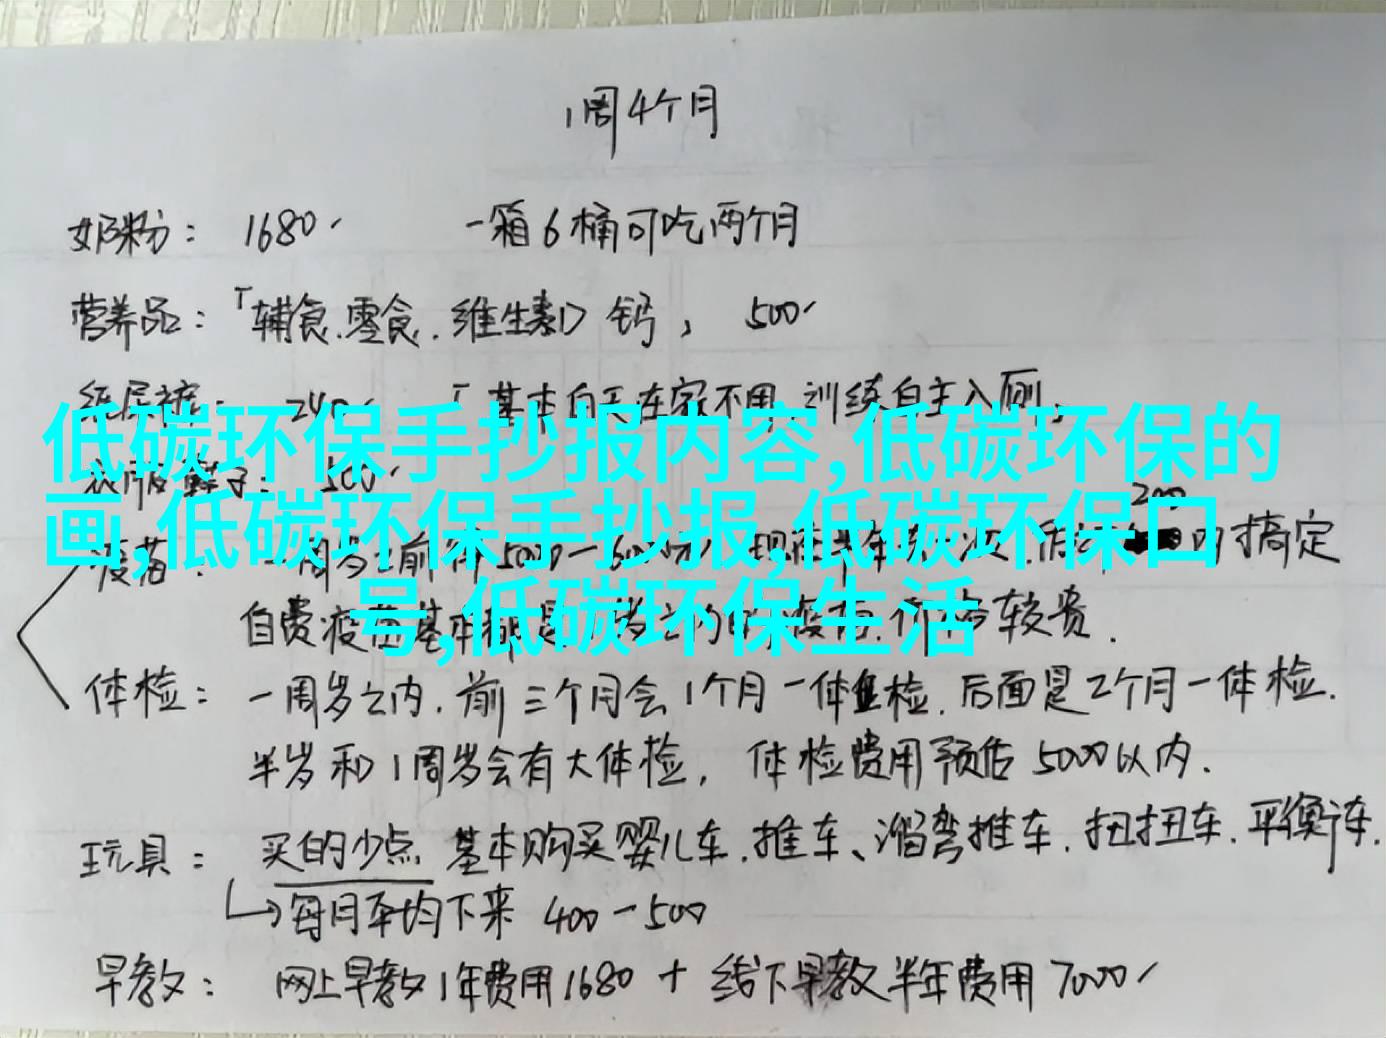 1周4个月
奶粉： 1680 一箱6桶可吃两个月
营养品：「辅食.零食.维生素D 钙， 500
纸尿裤： 240 「基本白天在家不用.训练自主入厕.
低碳环保手抄报内容,低碳环保的
衣服鞋子： 500
画,低碳环保手抄报,低碳环保口
200
疫苗： 一周岁之前 5000－6000 内搞定
号,低碳环保生活
自费疫苗基本都是一岁之内的疫苗.价格较贵.
体检： 一周岁之内.前三个月会1个月一体检.后面是2个月一体检.
半岁和1周岁会有大体检， 体检费用预估5000以内.
玩具： 买的少点 基本购买婴儿车.推车、溜弯推车.扭扭车.平衡车.
每月平均下来 400－500
早教： 网上早教1年费用1680 + 线下早教半年费用7000